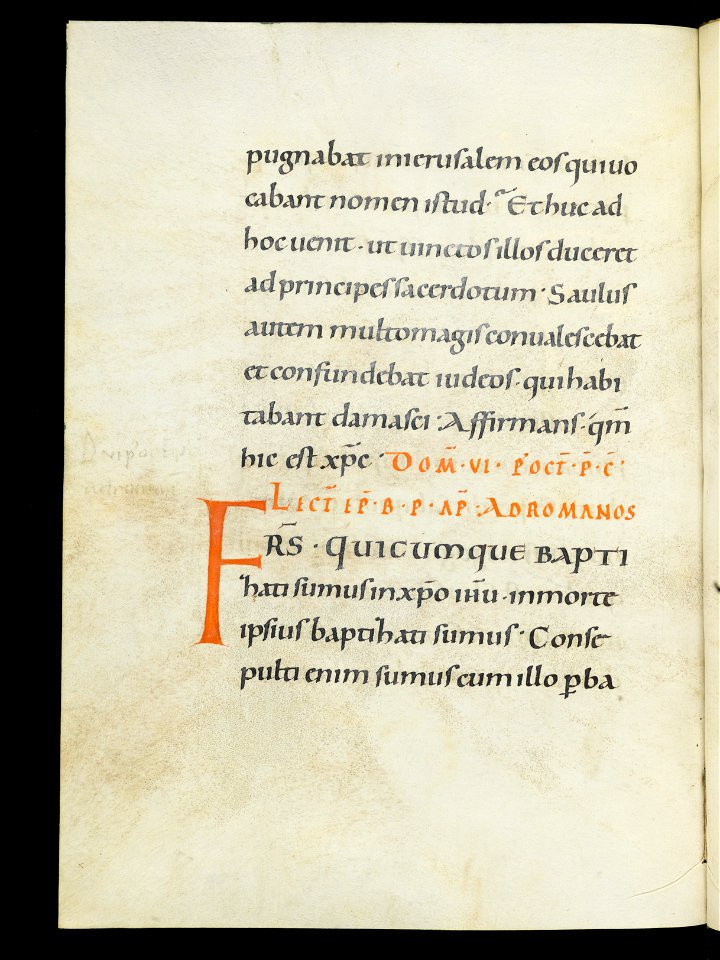 pugnabat inierusalem eos qui uo
cabant nomen istud· Et huc ad
hoc uenit· ut uinctos illos duceret
ad principes sacerdotum· Saulus
autem multo magis conualescebat
et confundebat iudeos· qui habi
tabant damasci· Affirmans· qm̄
hic est xp̄c· DOM̄·VI· P̄ OCT̄·P̄·C̄·
LECT̄ EP̄·B·P·AP̄· AD ROMANOS
FRS̄· QUICUMQUE BAPTI
hati sumus in xp̄o ihū· in morte
ipsius baptihati sumus· Conse
pulti enim sumus cum illo ꝑ ba